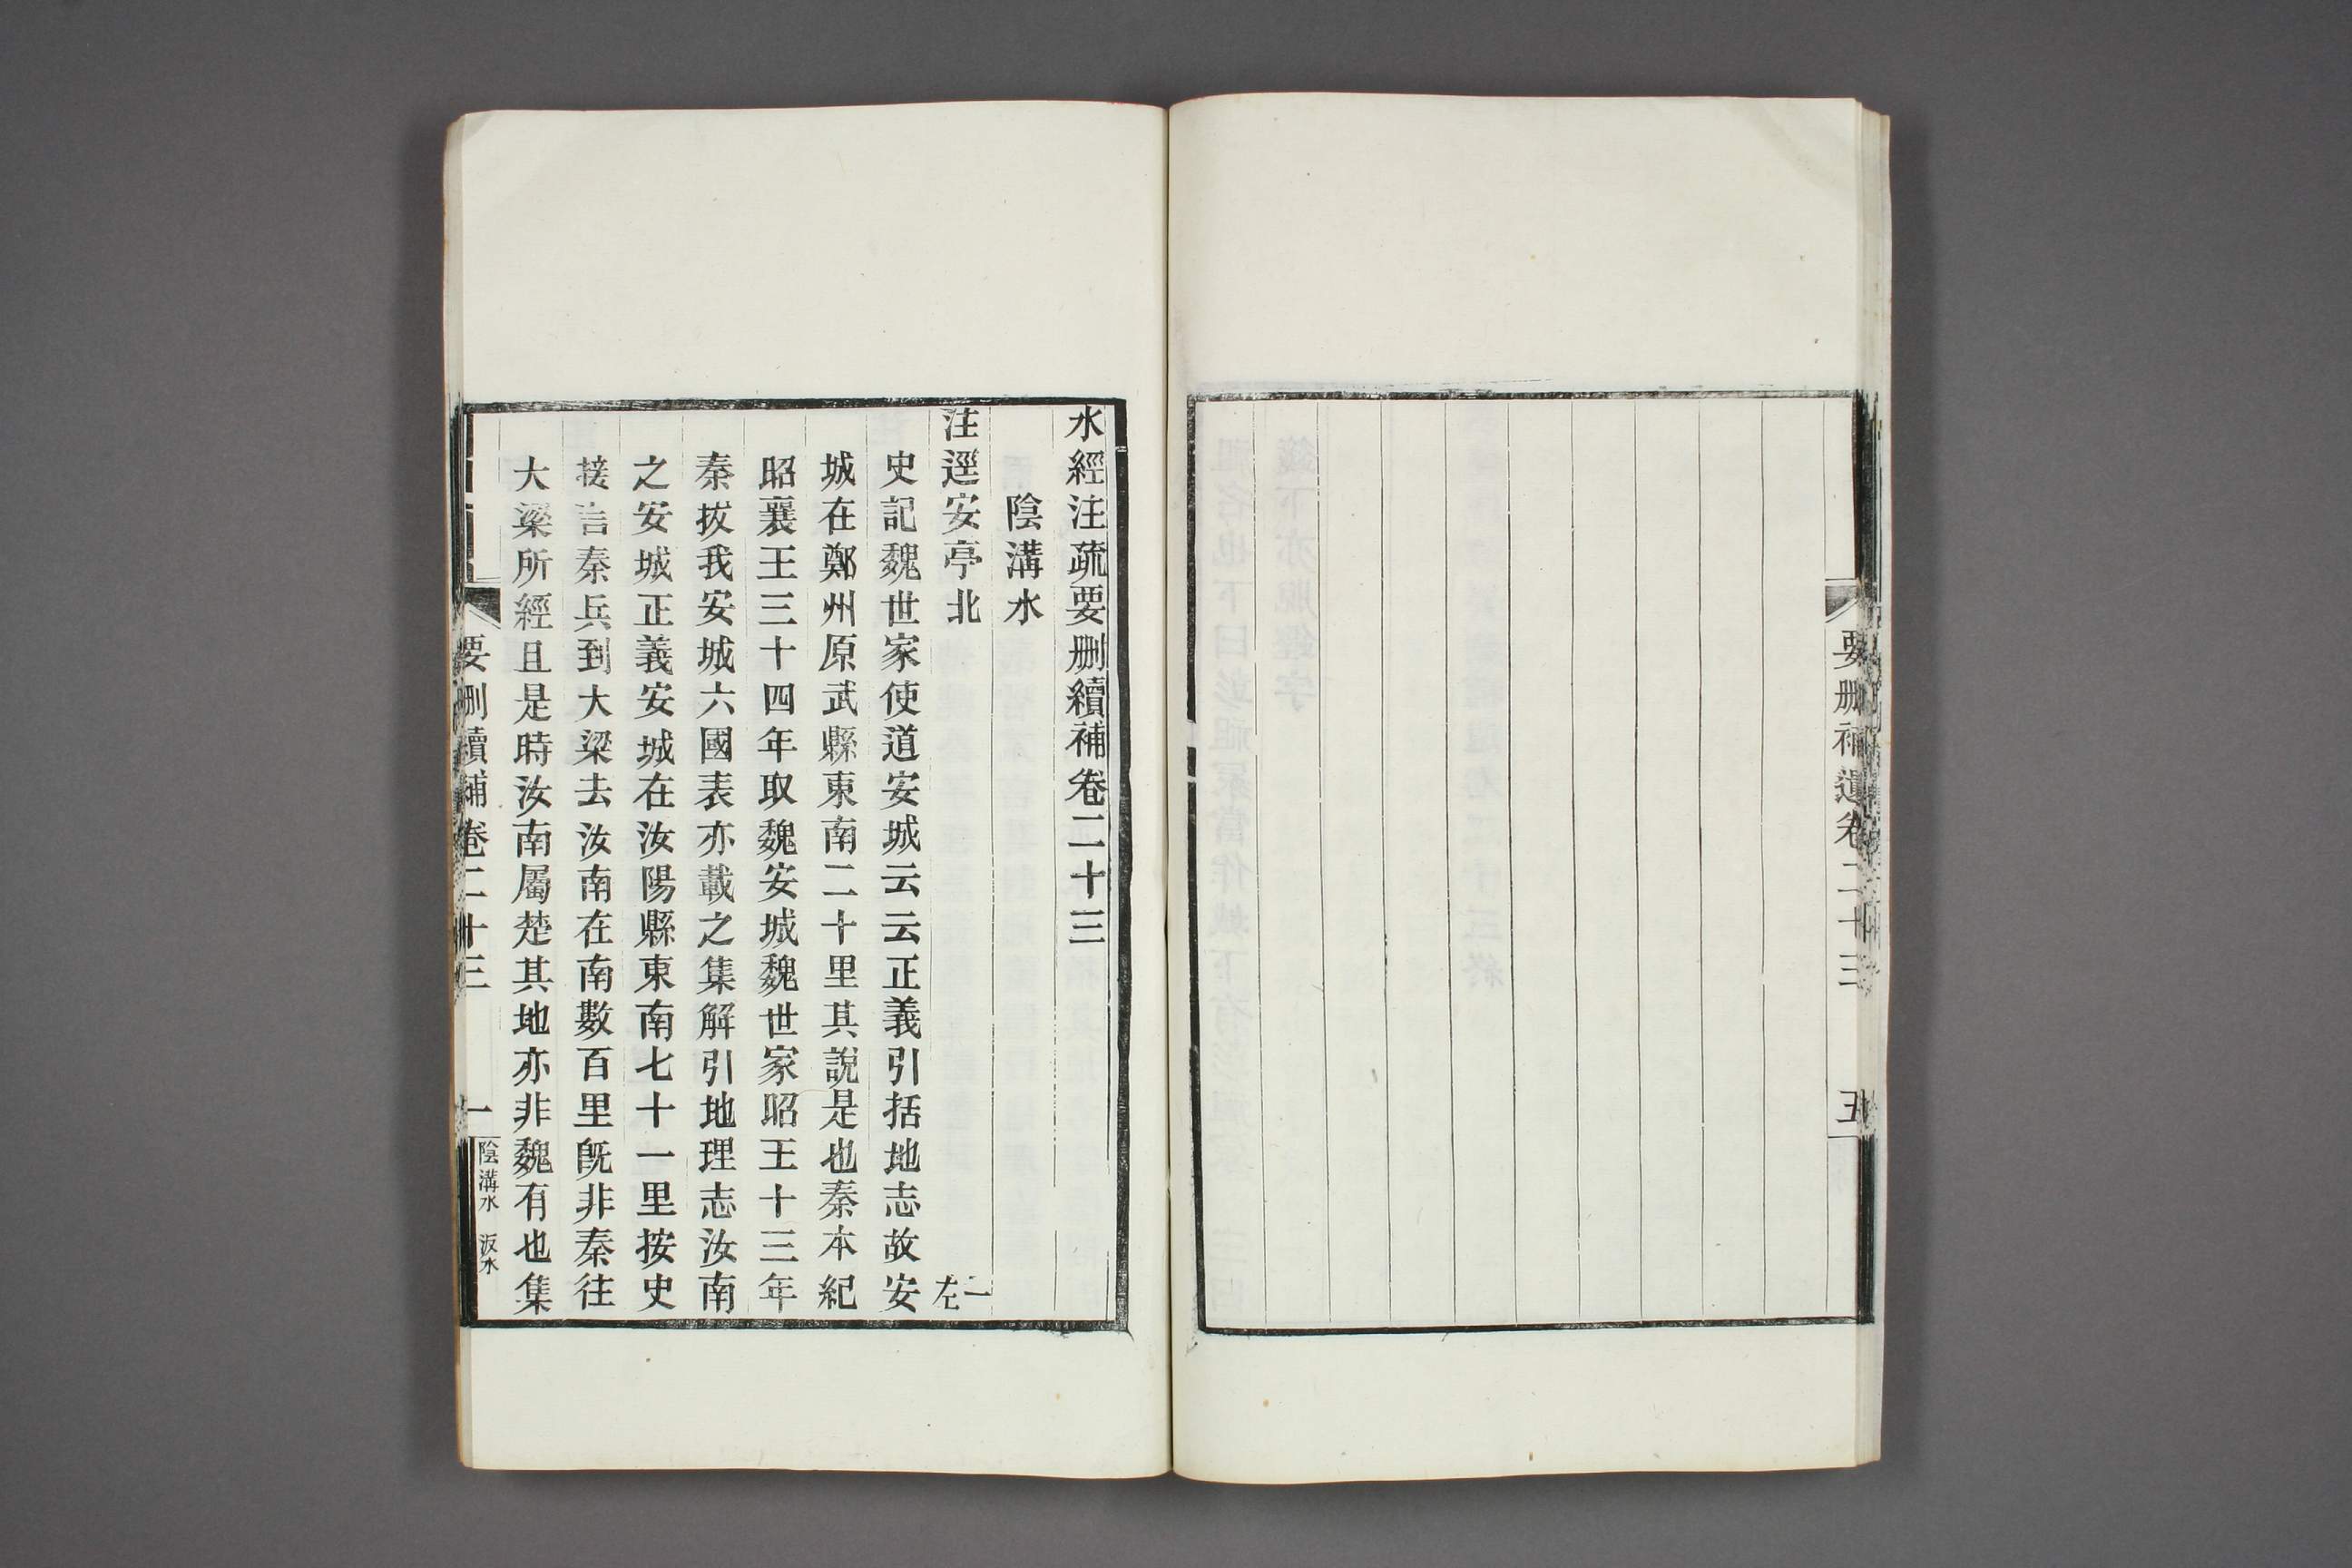 要刪補遺卷二十三
五
水經注疏要刪續補卷二十三
陰溝水
注逕安亭北
一左
史記魏世家使道安城云云正義引括地志故安
城在鄭州原武縣東南二十里其說是也秦本紀
昭襄王三十四年取魏安城魏世家昭王十三年
秦拔我安城六國表亦載之集解引地理志汝南
之安城正義安城在汝陽縣東南七十一里按史
接言秦兵到大梁去汝南在南數百里旣非秦往
大梁所經且是時汝南屬楚其地亦非魏有也集
要刪續補卷二十三
一
陰溝水 汳水